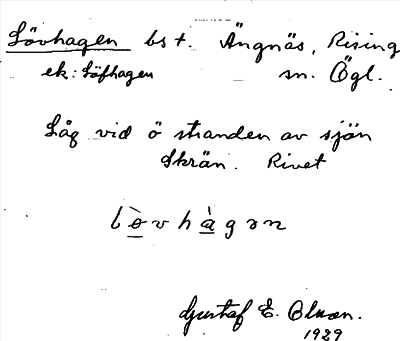 Lövhagen bst. Ängnäs, Rising
ek: Löfhagen sn. Ögl.
Låg vid ö stranden av sjön
Skrän. Rivet
lòvhàgən
Gustaf E. Olsson.
1929